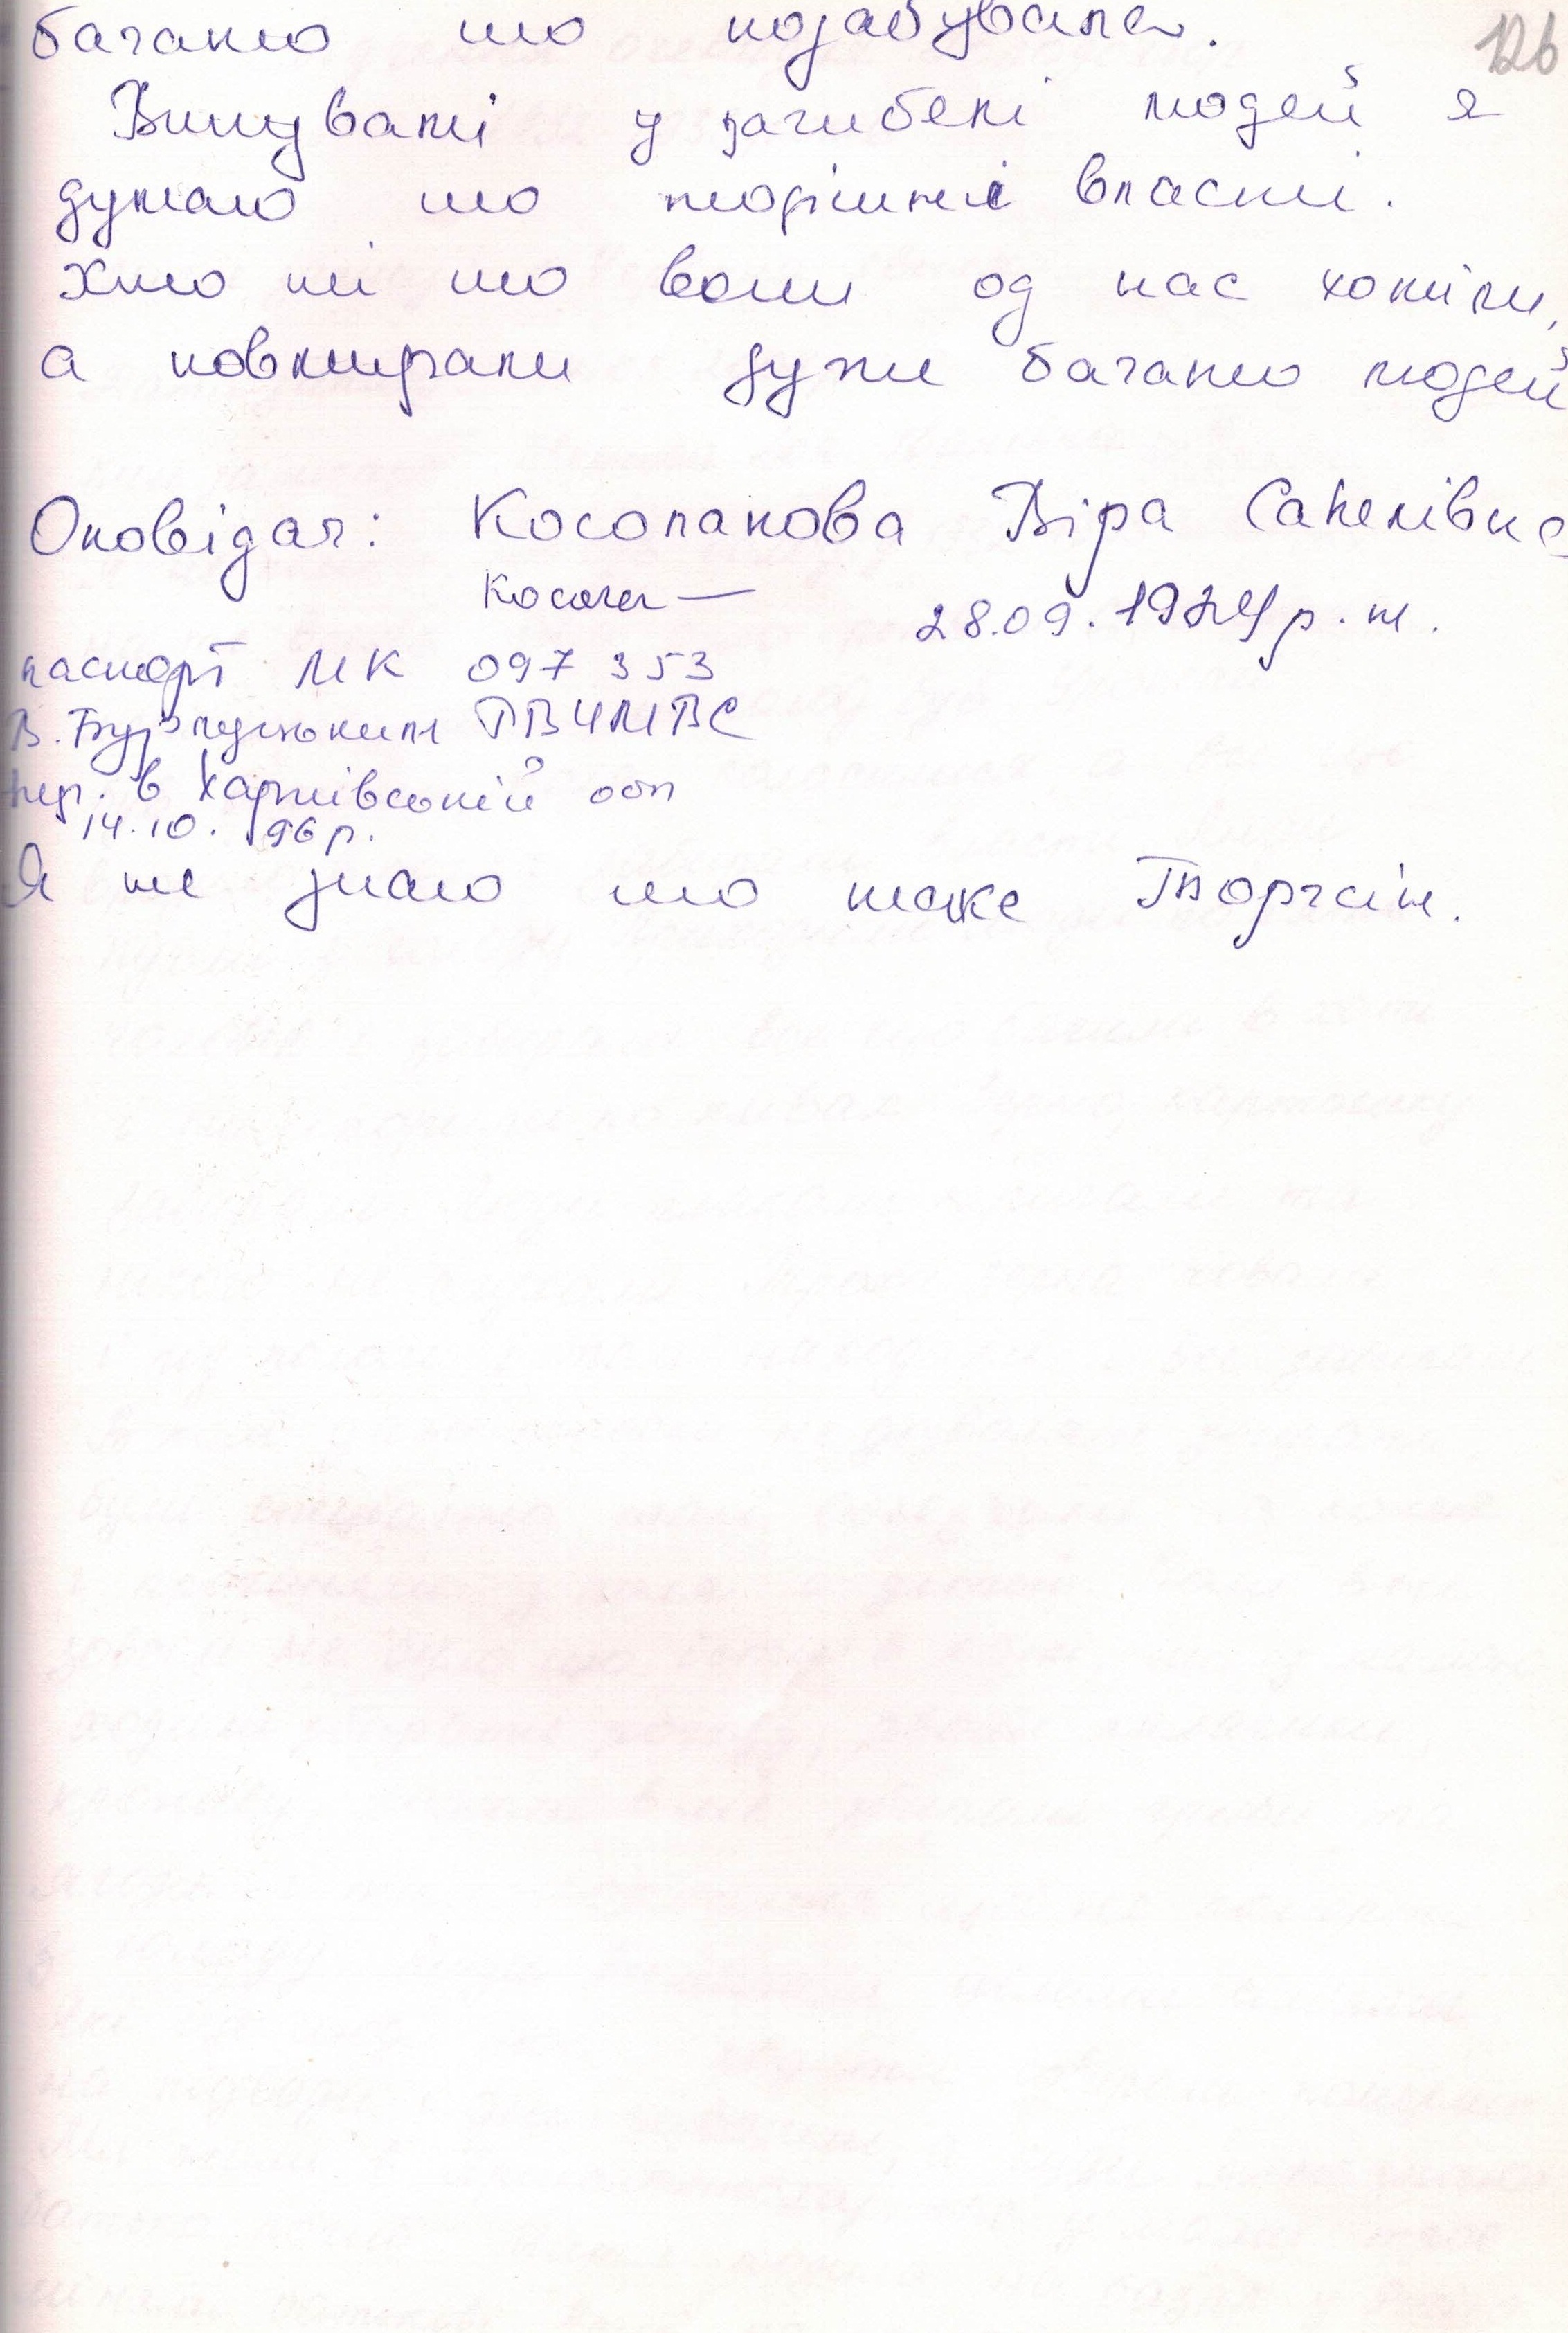 багато шо позабувала.
126
Винуваті у загибелі людей я
думаю шо тодішні власті.
Хто ні шо вони од нас хотіли,
а повмирали дуже багато людей
Оповідач: Косолапова Віра Савелівна
28.09.1924 р. н.
паспорт МК 097 353
В. Бурлуцьким РВУМВС
Укр. в Харківській обл
14.10. 96 р.
Я не знаю шо таке Торгсін.